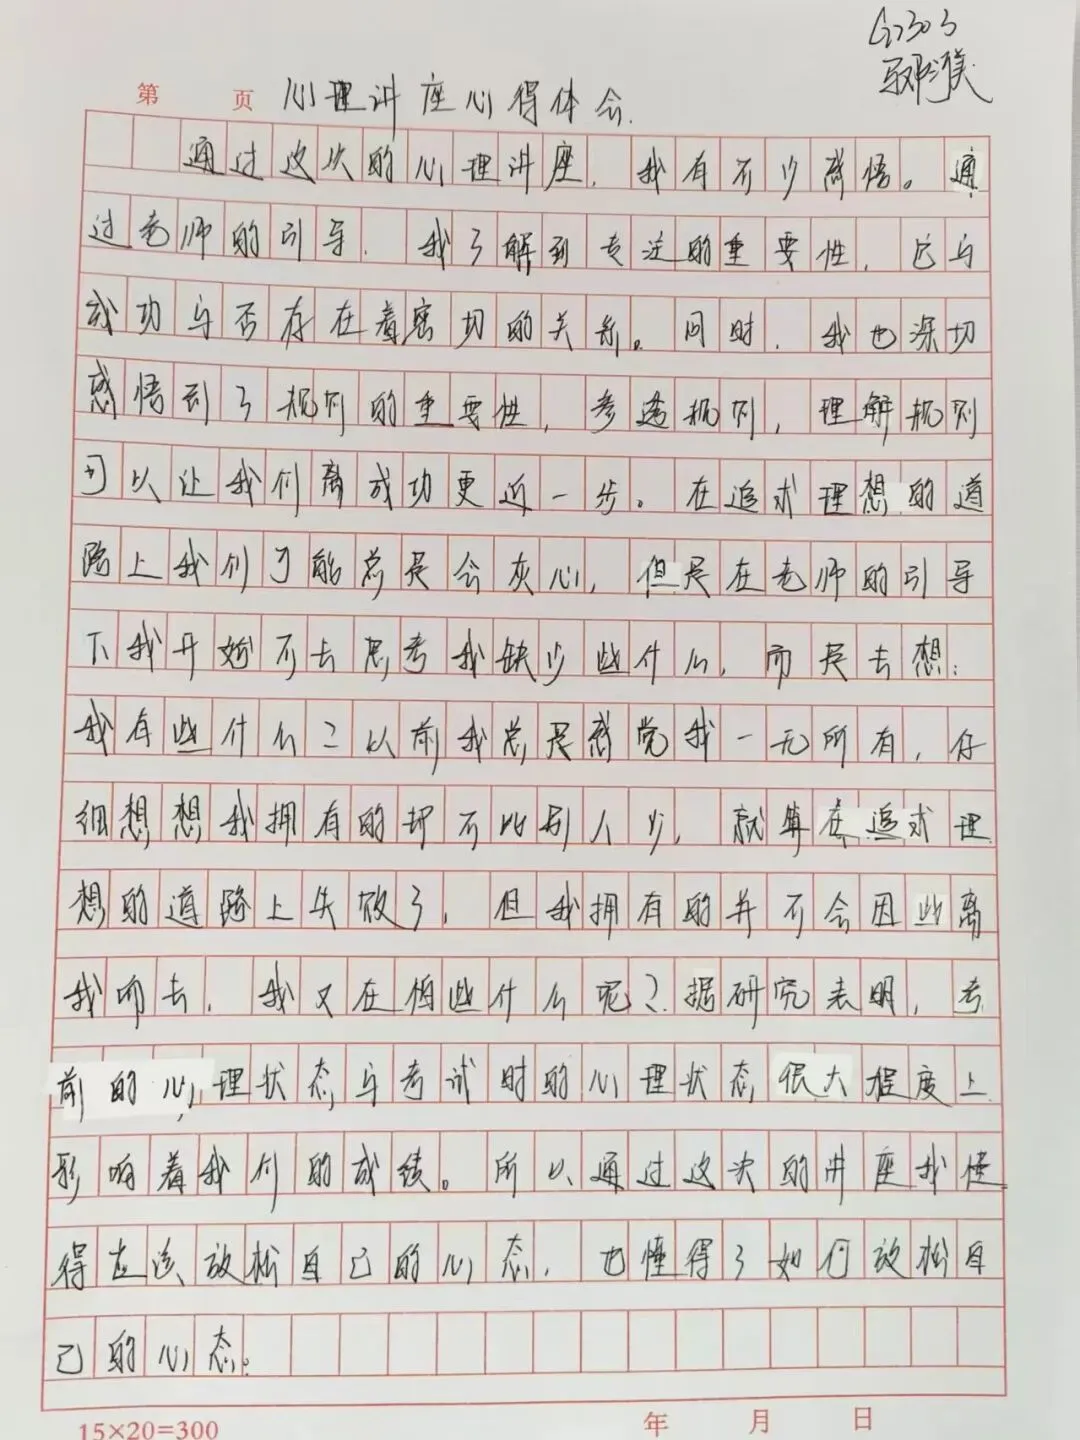 G2303
第 页 心理讲座心得体会.
通过这次的心理讲座，我有不少感悟。通
过老师的引导，我了解到专注的重要性，它与
成功与否存在着密切的关系。同时，我也深切
感悟到了规则的重要性，参透规则，理解规则
可以让我们离成功更近一步。在追求理想的道
路上我们可能总是会灰心，但是在老师的引导
下我开始不去思考我缺少些什么，而是去想：
我有些什么？以前我总是感觉我一无所有，仔
细想想我拥有的却不比别人少，就算在追求理
想的道路上失败了，但我拥有的并不会因此离
我而去，我又在怕些什么呢？据研究表明，考
前的心理状态与考试时的心理状态很大程度上
影响着我们的成绩。所以通过这次的讲座我懂
得应该放松自己的心态，也懂得了如何放松自
己的心态。
15×20=300 年 月 日